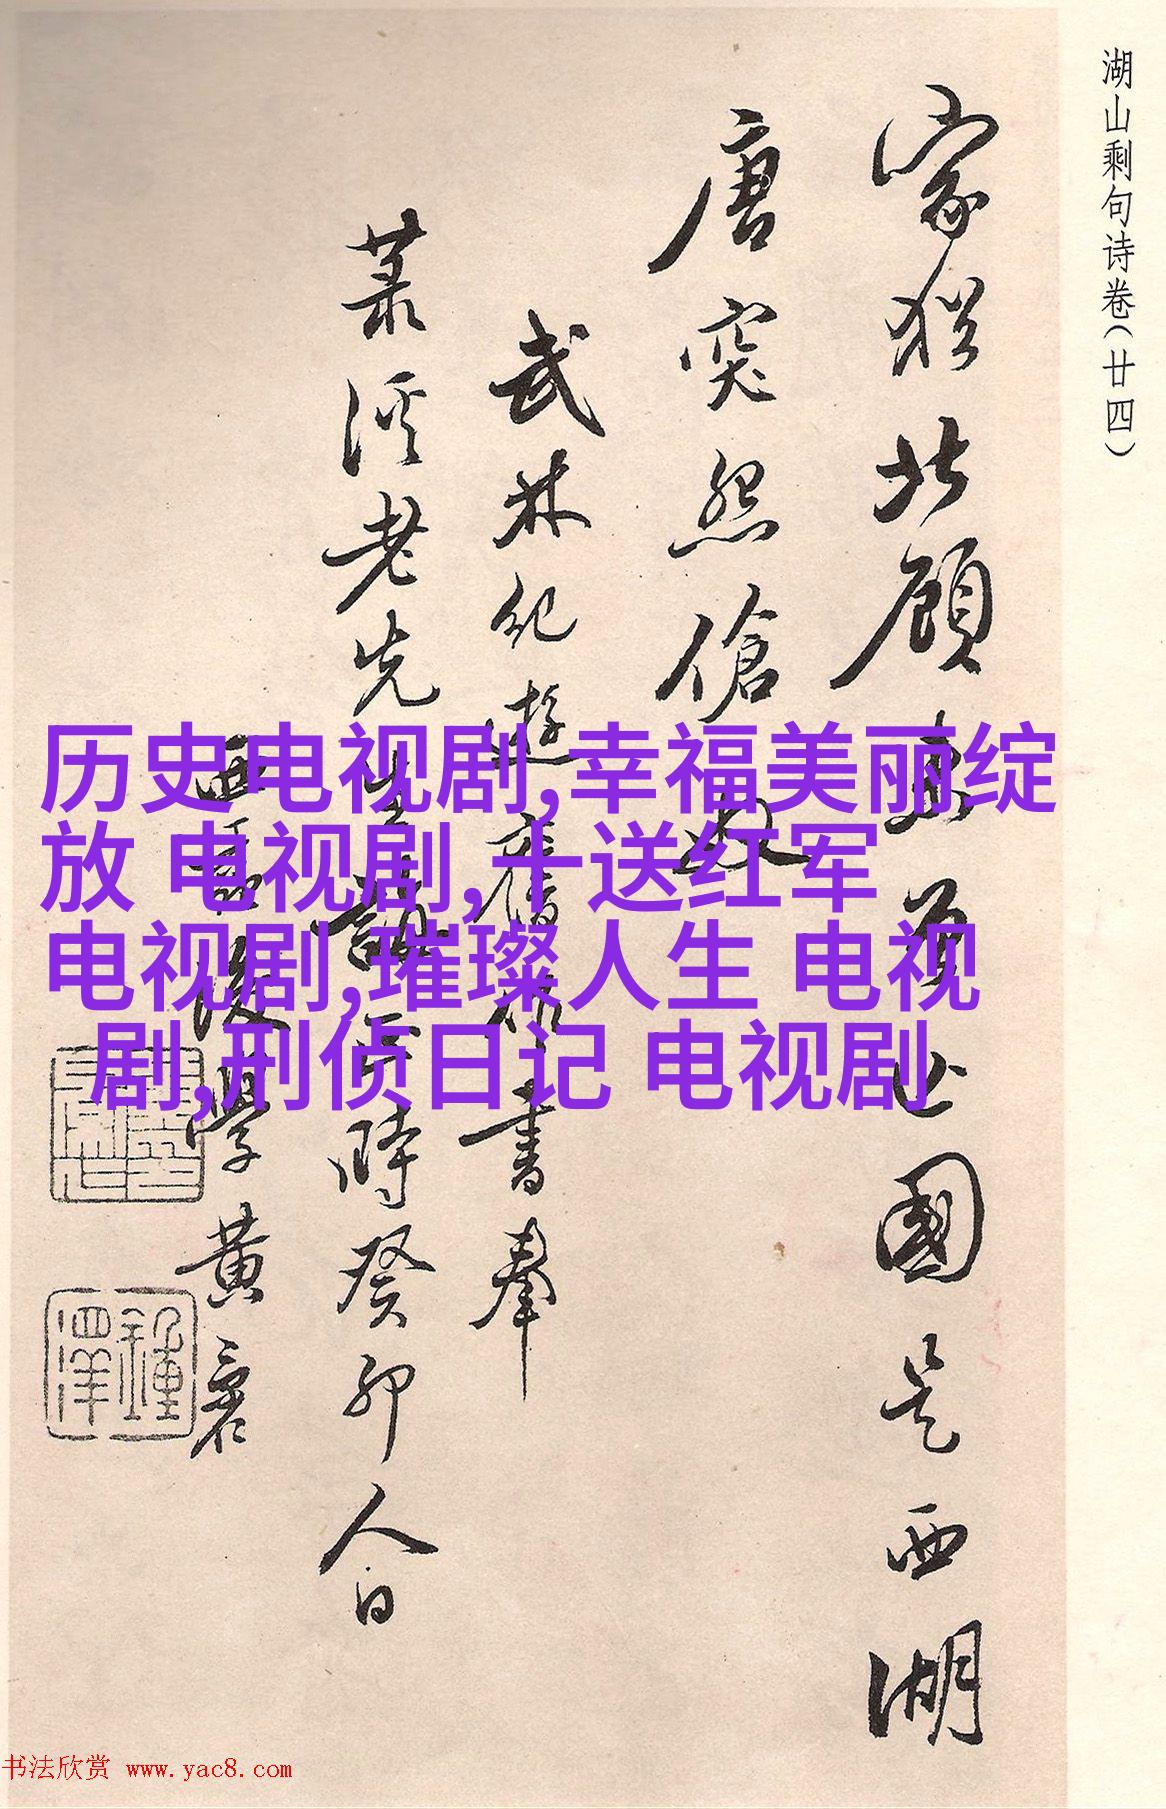 湖山剩句诗卷（廿四）
家猶北顧東首亡國是西湖
唐突然傖父
武林紀遊舊作書奉
菉溪老先生誨正時癸卯人日
後學黃裔
历史电视剧,幸福美丽绽
放 电视剧,十送红军
电视剧,璀璨人生 电视
剧,刑侦日记 电视剧
书法欣赏 www.yac8.com